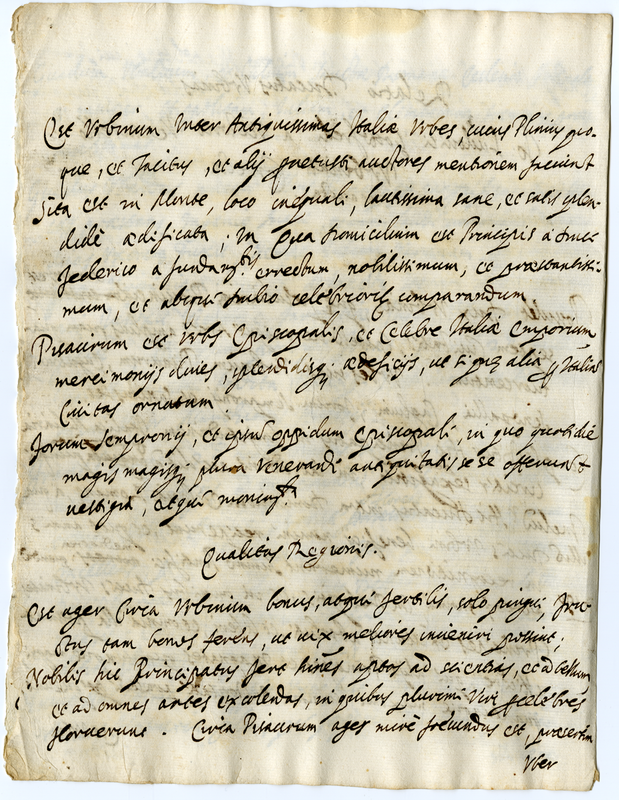 Est Urbinum inter Antiquissimas Italiæ Urbes cuius Plinius quo-
que, et Tacitus, et alij vetusti auctores mentionem faciunt
Sita est in Monte, loco inequali, lautissima sane, et satis splen-
didè ædificata; in qua domicilium est Principis à Duce
Federico a fundamtis errectum, nobilissimum, et præstantissi-
mum, et absqui dubio celebrioris comparandum
Pisaurum est Urbs Episcopalis, et Celebre Italiæ Emporium
mercimonijs dives, splendidisq; ædeficijs, ut si qua alia Italiæ
Civitas ornatum
Forum Sempronij, et ipsum oppidum Episcopali, in quo quotidie
magis magisq; plura venerandi antiquitatis se se offerunt
vestigia, atqui
Qualitas Regionis.
Est ager Circa Urbinum bonus, atqui fertilis, solo pingui, fru-
ctus tam bonos ferens, ut vix meliores inveniri possint;
Nobilis hic Principatus fert hines aptos ad scientias, et ad bellum
et ad omnes artes excolendas, in quibus plurimi Viri celebres
floruerunt. Circa Pisaurum ager mirè fecundus est, præsertim
Uber